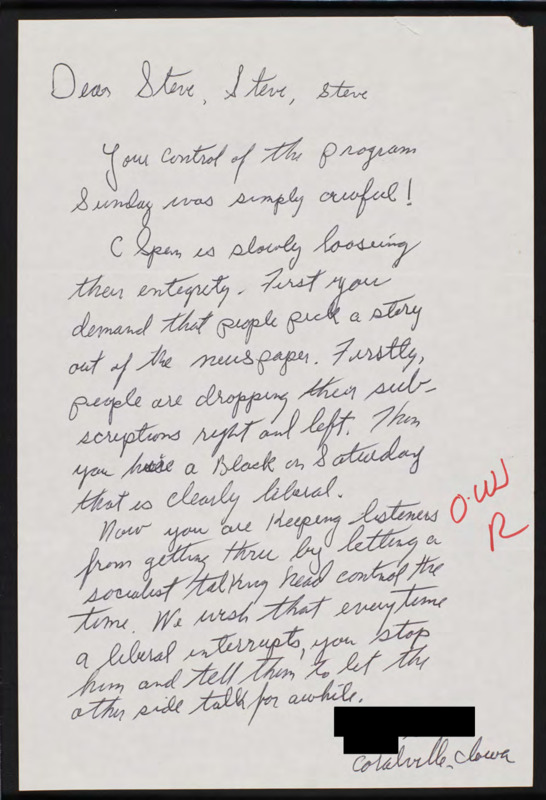 Dear Steve, Steve, Steve
Your control of the program
Sunday was simply awful!
C Span is slowly looseing
their entegrety. First you
demand that people pick a story
out of the newspaper. Firstly,
people are dropping their sub-
scriptions right and left. Then
you have a Black on Saturday
that is clearly liberal.
Now you are keeping listeners
from getting thru by letting a
socialist talking head control the
time. We wish that everytime
a liberal interrupts, you stop
him and tell them to let the
other side talk for awhile.
Coralville, Iowa
O.W
R